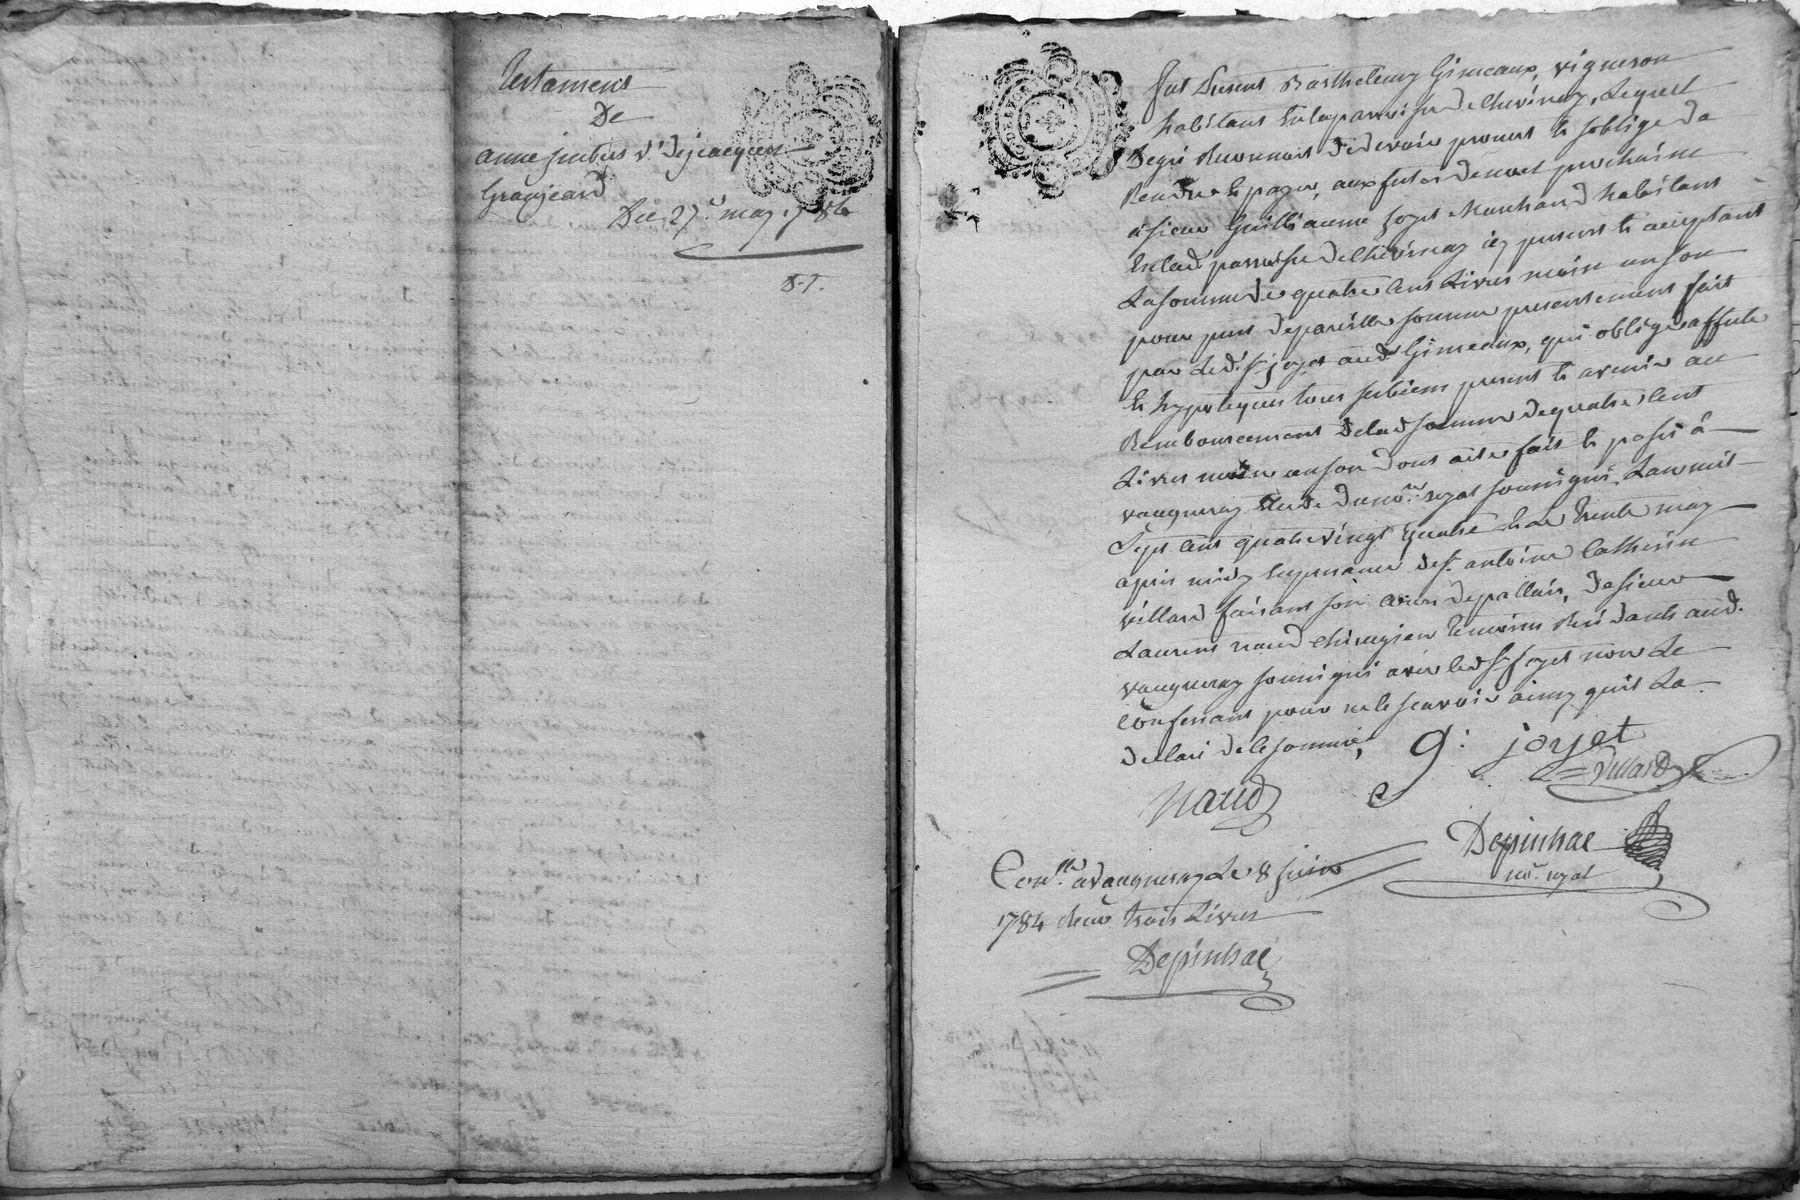 Testament
De
anne v.e de jacques
Granjeard
Du 27.e may 1784
Fut Present Barthelemy Gimeaux, vigneron
habitant en la paroisse de Chevinay, Lequel
De gré Reconnoit et devoir promet et s'oblige de
Rendre et payer, aux fetes de noel prochaine
a sieur Guillaume joyet Marchand habitant
en lad. paroisse de Chevinay icy present et acceptant
La somme de quatre cent Livres
pour pret de pareille somme presentement fait
par led. S.r joyet aud. Gimeaux, qui oblige affecte
et hypoteques tous ses biens present et avenir au
Remboursement de lad. somme de quatre cent
Livres dont acte fait et passé à
vaugneray Etude du no.re royal soussigné, L'an mil
Sept cent quatre vingt quatre et Le trente may
après midy en presence de S.r antoine Catherin
villard faisant son cours de pallais, et de sieur
Laurent naud chirurgien temoins Residants aud.
vaugneray soussignés avec led. S.r joyet non Le
Confessant pour ne le sçavoir ainsy qu'il L'a
declaré de ce sommé,
g: joyet
Villard
naud
Depinhac
no.re royal
Con.llé a Vaugneray Le 8 juin
1784 trois Livres
Depinhac